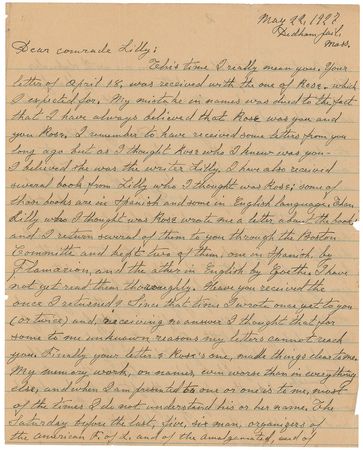 May 22, 1927
Dedham jail,
Mass.
Dear comrade Lilly:
This time I really mean you. Your
letter of April 18, was received with the one of Rose, which
I expected for. My mistake in names was dued to the fact
that I have always believed that Rose was you and
you Rose, I remember to have received some letters from you
long ago but as I thought Rose who I knew was you-
I believed she was the writer Lilly. I have also received
several book from Lilly who I thought was Rose; some of
them books are in Spanish and some in English language. Then
Lilly who I thought was Rose wrote me a letter about the books
and I return several of them to you through the Boston
Committe and kept two of them, one in Spanish, by
Flamarion, and the other in English by Goethe. I have
not yet read than thoroughly. Have you received the
once I returned? Since that time I wrote once yet to you
(or twice) and, receiving no answer I thought that for
some to me unknown reasons my letters cannot reach
you. Finally your letter & Rose's one, make things clear to me.
My memory work, on names, even worse than in everything
else, and when I am presented to one or one is to me, most
of the times I do not understand his or her name. The
Saturday before the last, five, six man, organizers of
the American F. of L. and of the Amalgamated, and of